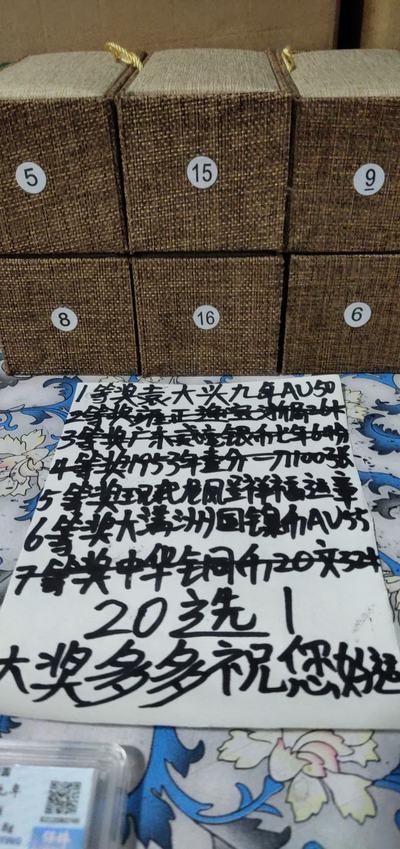 5
15
9
8
16
6
1等奖袁大头九年AU50
2等奖雍正
3等奖广东贰毫银币七年64分
4等奖1953年壹分一刀100张
5等奖现代龙凤呈祥福运章
6等奖大满洲国镍币AU55
7等奖中华铜币20文324
20选1
大奖多多祝您好运